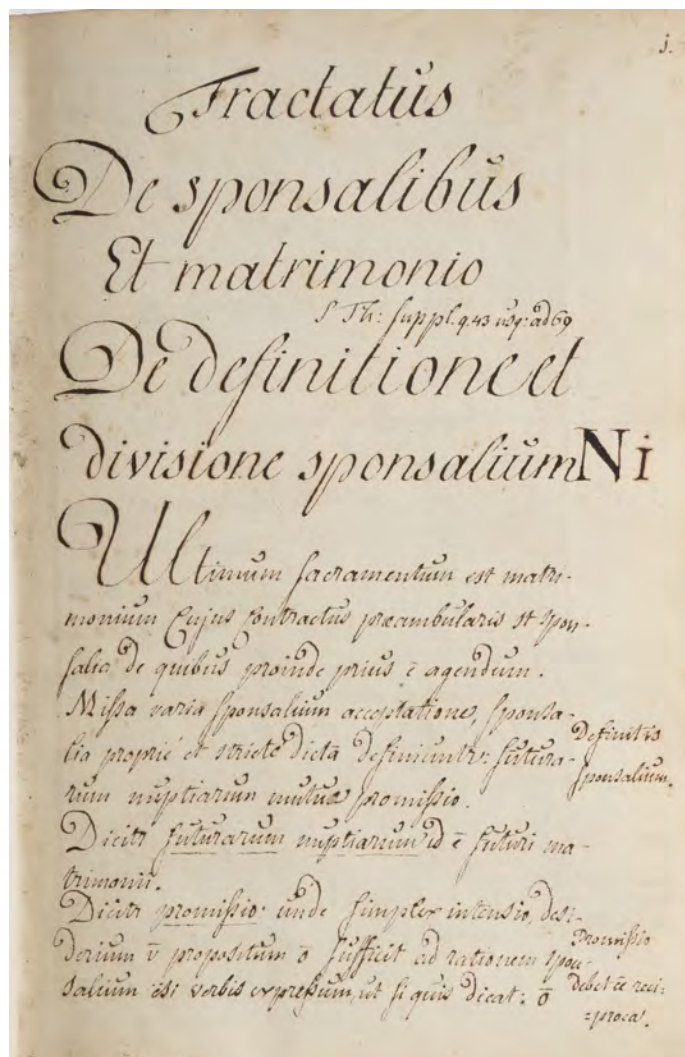 j.
Tractatus
De sponsalibus
Et matrimonio
S Th: suppl. q. 43 usq: ad 69
De definitione et
divisione sponsalium Ni
Ultimum sacramentum est matri-
monium cujus contractus præambularis st spon-
salia de quibus proinde prius ē agendum.
Missa varia sponsalium acceptatione, sponsa-
lia propriè et stricte dicta definiuntr: futura-
rum nuptiarum mutua promissio.
Definitio
sponsalium.
Dicitr futurarum nuptiarum id ē futuri ma-
trimonii.
Dicitr promissio: unde simplex intensio, desi-
derium v̄ propositum ō sufficit ad rationem spon-
salium esi verbis expressum, ut si quis dicat: ō
Promissio
debet ēe reci=
=proca.